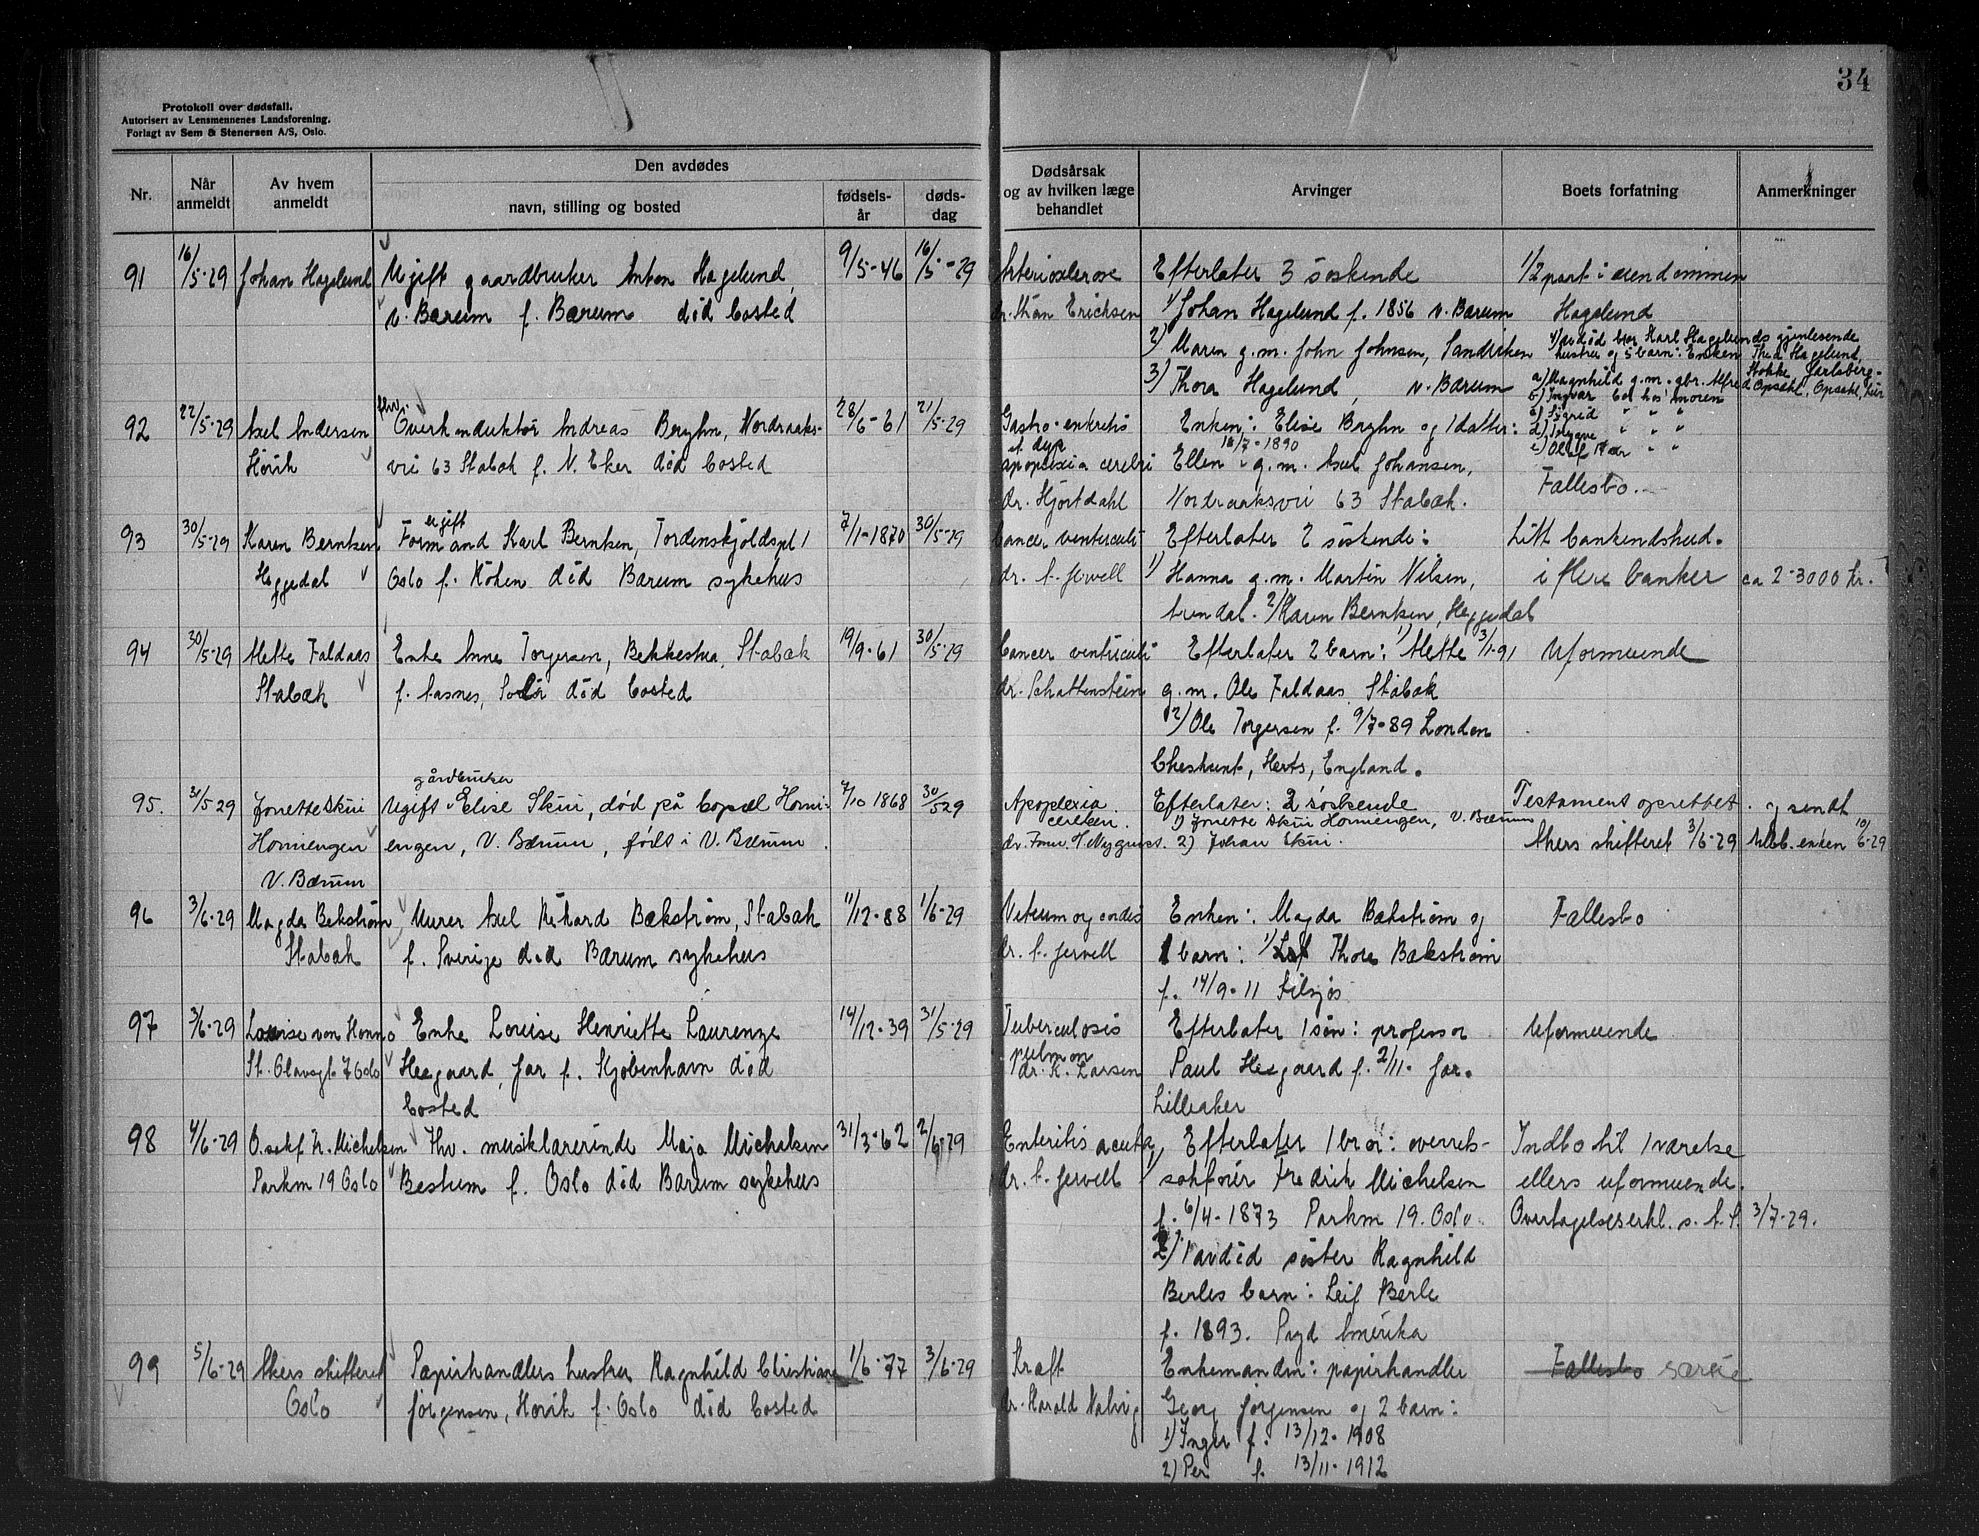 34
Protokoll over dødsfall.
Autorisert av Lensmennenes Landsforening.
Forlagt av Sem & Stenersen A/S, Oslo.
Nr.
Når anmeldt
Av hvem anmeldt
Den avdødes
navn, stilling og bosted
fødsels-år
døds-dag
Dødsårsak og av hvilken læge behandlet
Arvinger
Boets forfatning
Anmerkninger
91 16/5-29 Johan Hagelund Ugift gaardbruker Anton Hagelund, 9/5-46 16/5-29 Arteriosclerose Efterlater 3 søskende 1/2 part i eiendommen
v. Bærum f. Bærum død bosted dr. Thán Ericksen 1) Johan Hagelund f. 1856 v. Bærum Hagelund
2) Maren g.m. John Johnsen, Sandviken 4) avdød bror Karl Hagelunds gjenlevende
hustru og 5 barn: Enken Thea Hagelund,
3) Thora Hagelund, v. Bærum a) Magnhild g.m. gbr. Alfred Opsahl, Opsahl, Lier
Stokke Jarlsberg
b) Ingvar bol hos moren
c) Sigrid " " "
d) Trygve " " "
e) Olaf " "
92 22/5-29 Axel Andersen fhv. Overkonduktør Andreas Bryhn, Nordraaks- 28/6-61 21/5-29 Gastro-enteritis Enken: Elise Bryhn og 1 datter:
Høvik vei 63 Stabæk f. N. Eker død bosted apoplexia cerebri Ellen 18/7-1890 g.m. Axel Johansen, Fællesbo.
dr. Hjortdahl Nordraaksvei 63 Stabæk.
93 30/5-29 Karen Berntsen Formand ugift Karl Berntsen, Tordenskjoldspl 1 7/1-1870 30/5-29 Cancer ventriculi Efterlater 2 søskende: Litt bankindskud.
Heggedal Oslo f. Røken død Bærum sykehus dr. A. Jervell 1) Hanna g.m. Martin Nilsen, i flere banker ca 2-3000 kr.
Arendal. 2) Karen Berntsen, Heggedal
94 30/5-29 Mette Faldaas Enke Anne Torgersen, Bekkestua, Stabæk 19/9-61 30/5-29 Cancer ventriculi Efterlater 2 barn: 1) Mette 3/1-91 Uformuende
Stabæk f. Aasnes, Solør død bosted dr. Schattenstein g.m. Ole Faldaas Stabæk
2) Ole Torgersen f. 9/7-89 London
Cheshunt, Herts, England.
95. 31/5 29 Jonette Skui Ugift gårdbruker Elise Skui, død på bopæl Horni- 7/10 1868 30/5 29 Apoplexia Efterlater: 2 søskende Testament oprettet. og sendt
cerebri. 1) Jonette Skui Horniengen, V. Bærum
Horniengen engen, V. Bærum, født i V. Bærum. 2) Johan Skui. Akers skifteret 3/6-29 10/6-29
V. Bærum
96 3/6-29 Magda Bekstrøm Murer Axel Rikard Bækstrøm, Stabæk 11/12-88 1/6-29 Vitium org cordis Enken: Magda Bækstrøm og Fællesbo
Stabæk f. Sverige død Bærum sykehus dr. A. Jervell 1 barn: 1) Leif Thore Bækstrøm
f. 14/9-11
97 3/6-29 Louise von Hanno Enke Louise Henriette Laurenze 14/12-39 31/5-29 Tuberculosis Efterlater 1 søn: professor Uformuende
St. Olavsgt 7 Oslo Heegaard, Jar f. Kjøbenhavn død pulmon
dr. K. Larsen Paul Heegaard f. 2/11- Jar.
bosted Lilleaker
98 4/6-29 O.sakf. Fr. Michelsen Fhv. musiklærerinde Maja Michelsen 31/3-62 2/6-29 Enteritis acuta Efterlater 1 bror: overrets- Indbo til 1 værelse
Parkvn 19 Oslo Bestum f. Oslo død Bærum sykehus dr. A. Jervell 1) sakfører Fredrik Michelsen ellers uformuende.
f. 6/4-1873 Parkvn 19. Oslo. Overtagelseserkl. s. A. S. 3/7-29.
2) 1 avdød søster Ragnhild
Berles barn: Leif Berle
f. 1893. Amerika
99 5/6-29 Akers skifteret Papirhandlers hustru Ragnhild Christiane 1/6-77 3/6-29 Kræft Enkemanden: papirhandler Fællesbo særeie
Oslo Jørgensen, Høvik f. Oslo død bosted dr. Harald Natvig Georg Jørgensen og 2 barn:
1) Inger f. 13/12-1908
2) Per f. 13/11-1912